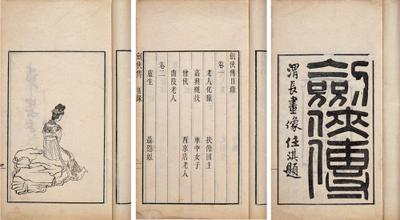 劍俠傳
渭長畫像 任淇題
劍俠傳目錄
卷一
老人化猿 扶餘國主
嘉興繩技 車中女子
僧俠 京西店老人
蘭陵老人
卷二
盧生 聶隱娘
劍俠傳 目錄